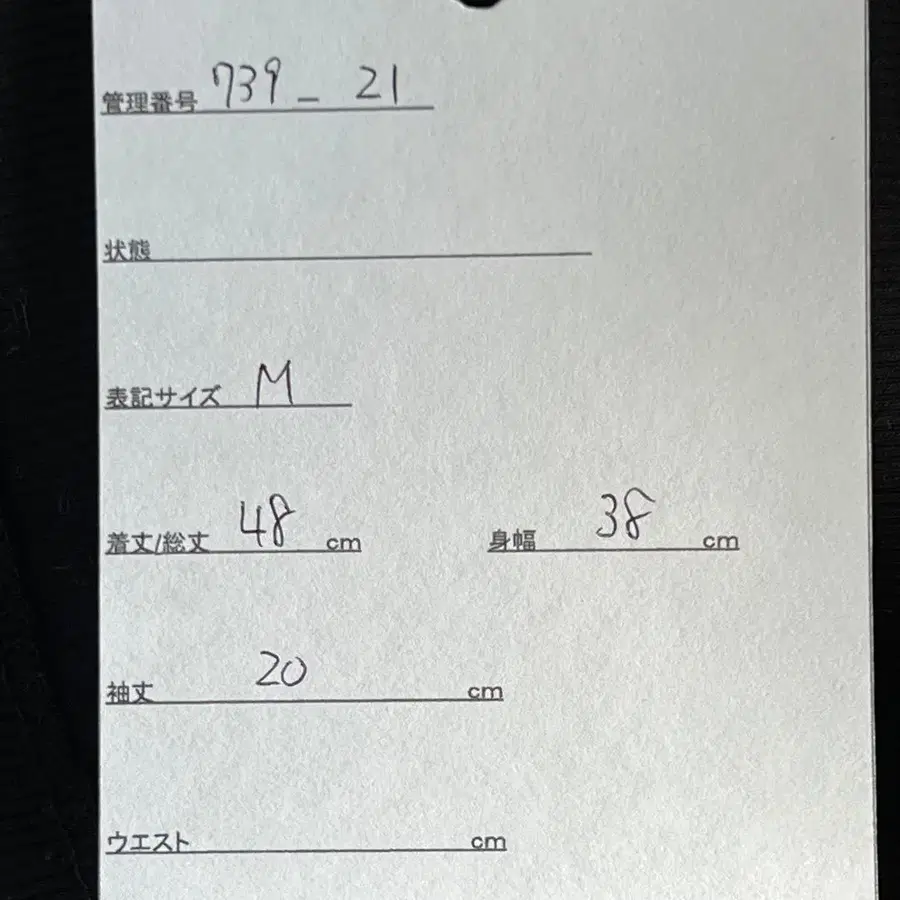 管理番号 739_ 21
状態
表記サイズ M
着丈/総丈 48 cm 身幅 38 cm
袖丈 20 cm
ウエスト cm